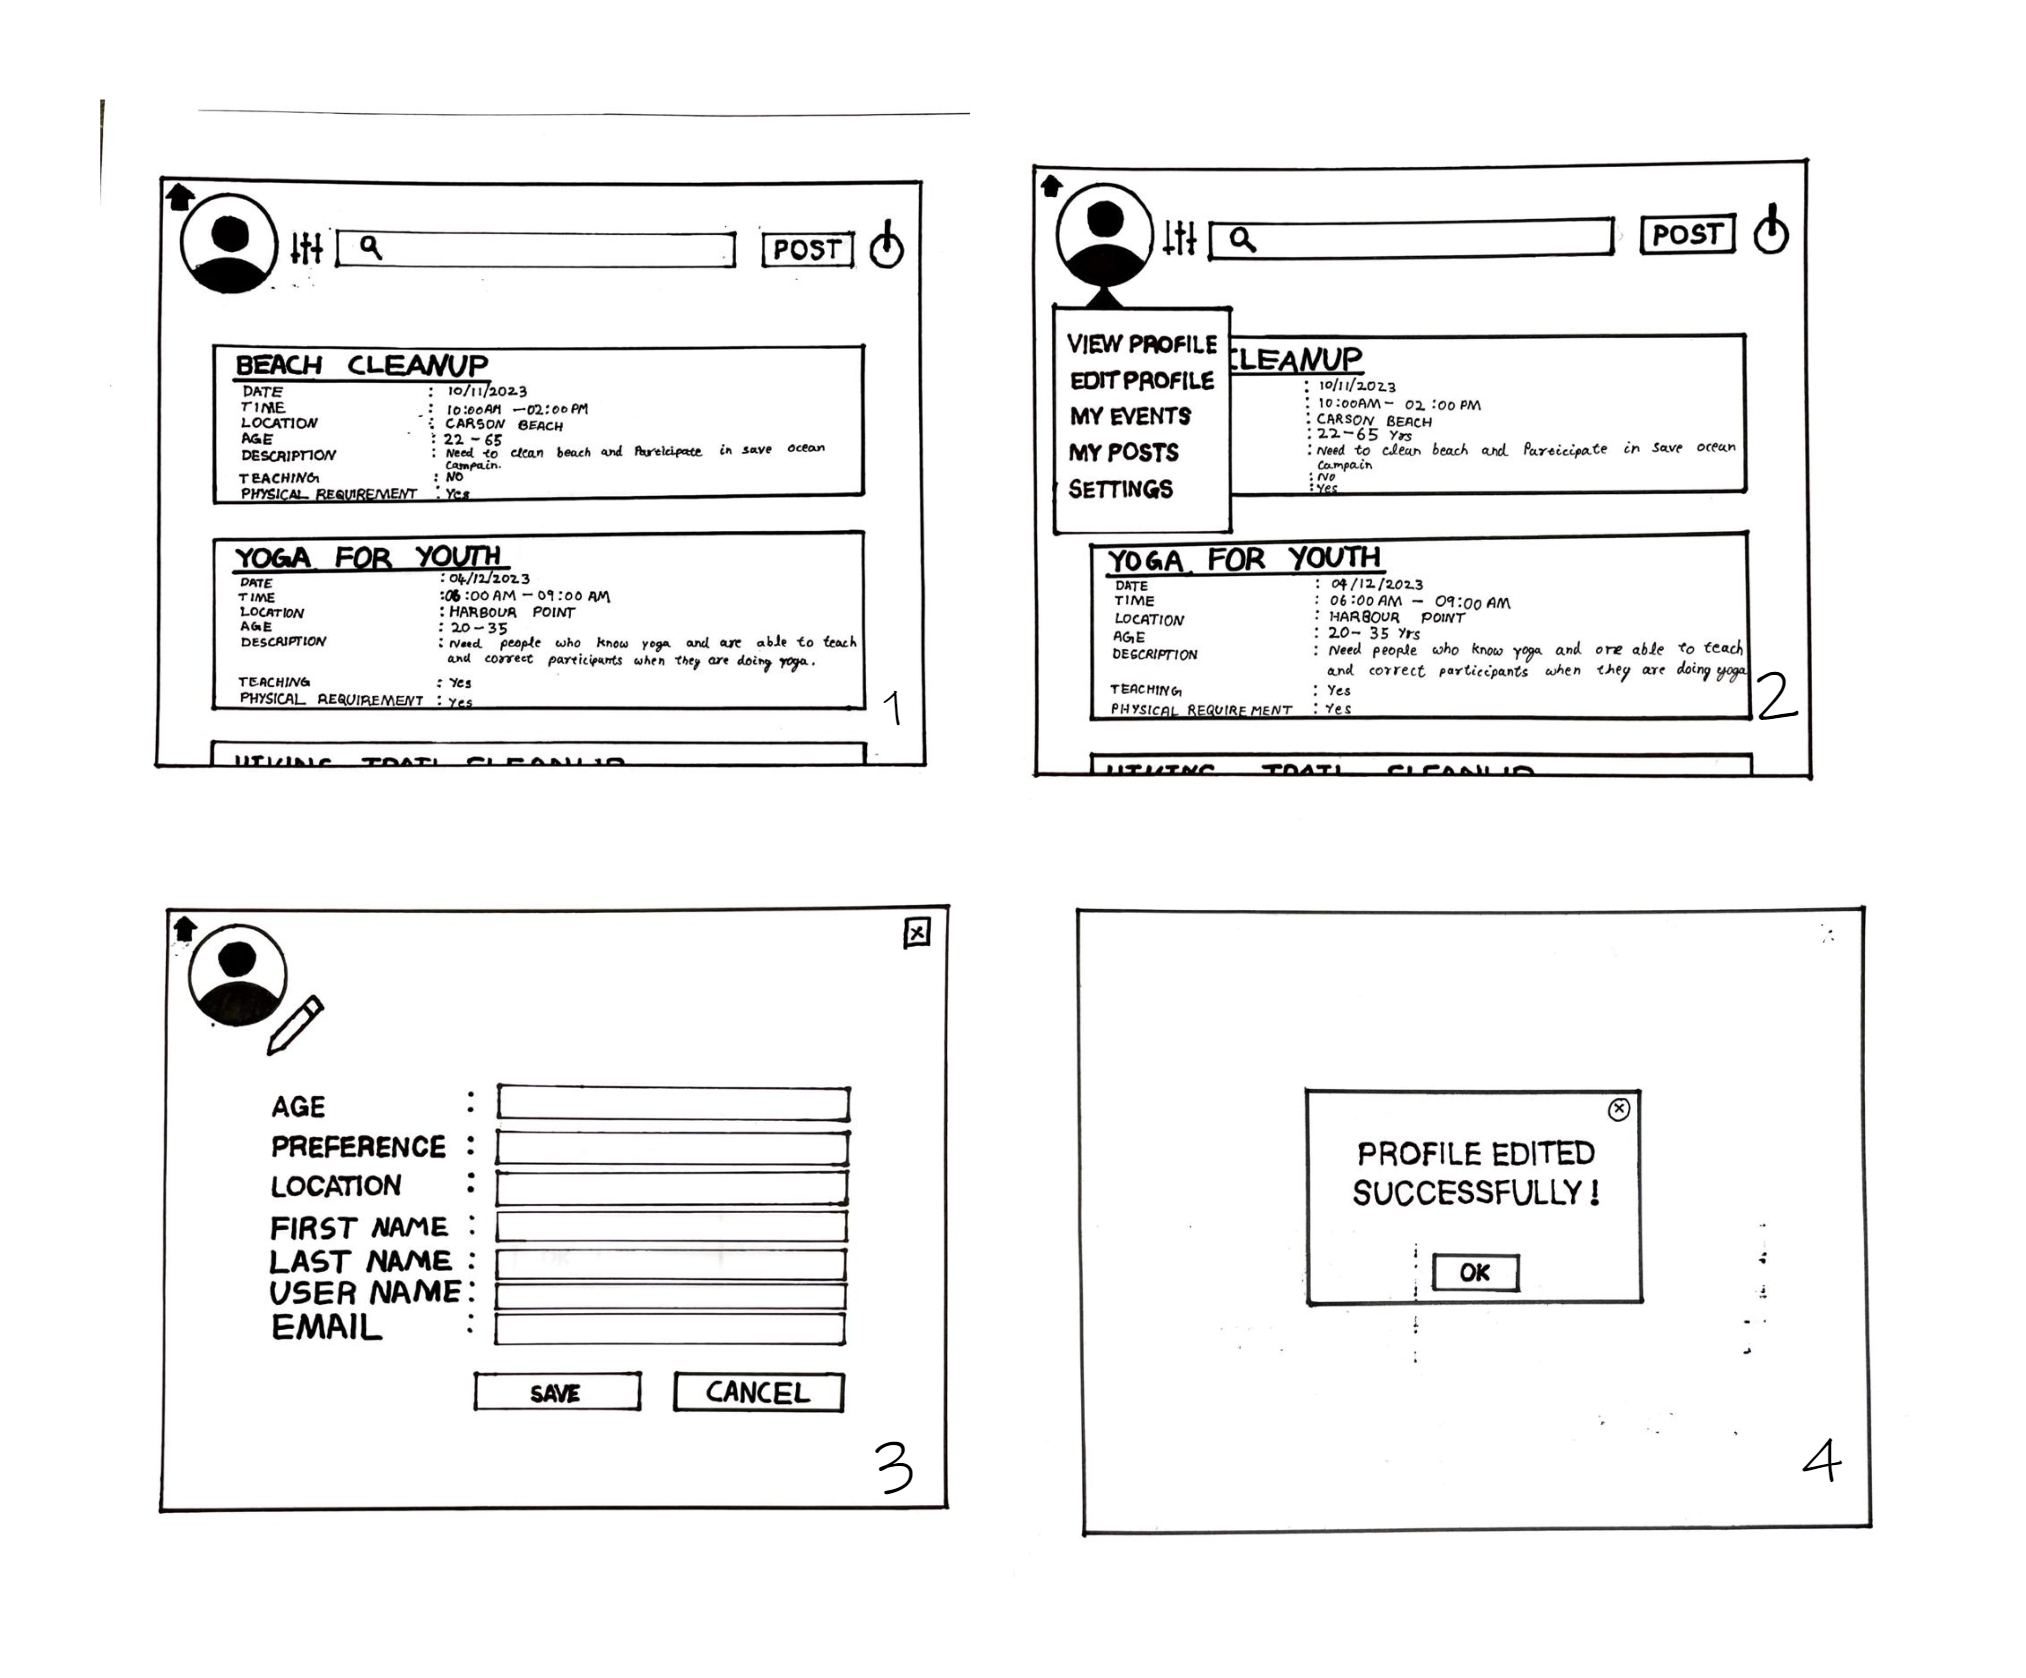 POST
BEACH CLEANUP
DATE : 10/11/2023
TIME : 10:00AM - 02:00 PM
LOCATION : CARSON BEACH
AGE : 22 - 65
DESCRIPTION : Need to clean beach and Participate in save ocean
Campain.
TEACHING : NO
PHYSICAL REQUIREMENT : Yes
YOGA FOR YOUTH
DATE : 04/12/2023
TIME : 06:00 AM - 09:00 AM
LOCATION : HARBOUR POINT
AGE : 20 - 35
DESCRIPTION : Need people who know yoga and are able to teach
and correct participants when they are doing yoga.
TEACHING : Yes
PHYSICAL REQUIREMENT : Yes
HIKING TRAIL CLEANUP
1
POST
VIEW PROFILE
EDIT PROFILE
MY EVENTS
MY POSTS
SETTINGS
CLEANUP
: 10/11/2023
: 10:00AM - 02:00 PM
: CARSON BEACH
: 22-65 Yrs
: Need to clean beach and Participate in save ocean
Campain
: No
: Yes
YOGA FOR YOUTH
DATE : 04/12/2023
TIME : 06:00 AM - 09:00 AM
LOCATION : HARBOUR POINT
AGE : 20- 35 Yrs
DESCRIPTION : Need people who know yoga and are able to teach
and correct participants when they are doing yoga
TEACHING : Yes
PHYSICAL REQUIREMENT : Yes
HIKING TRAIL CLEANUP
2
AGE :
PREFERENCE :
LOCATION :
FIRST NAME :
LAST NAME :
USER NAME :
EMAIL :
SAVE CANCEL
3
PROFILE EDITED
SUCCESSFULLY!
OK
4